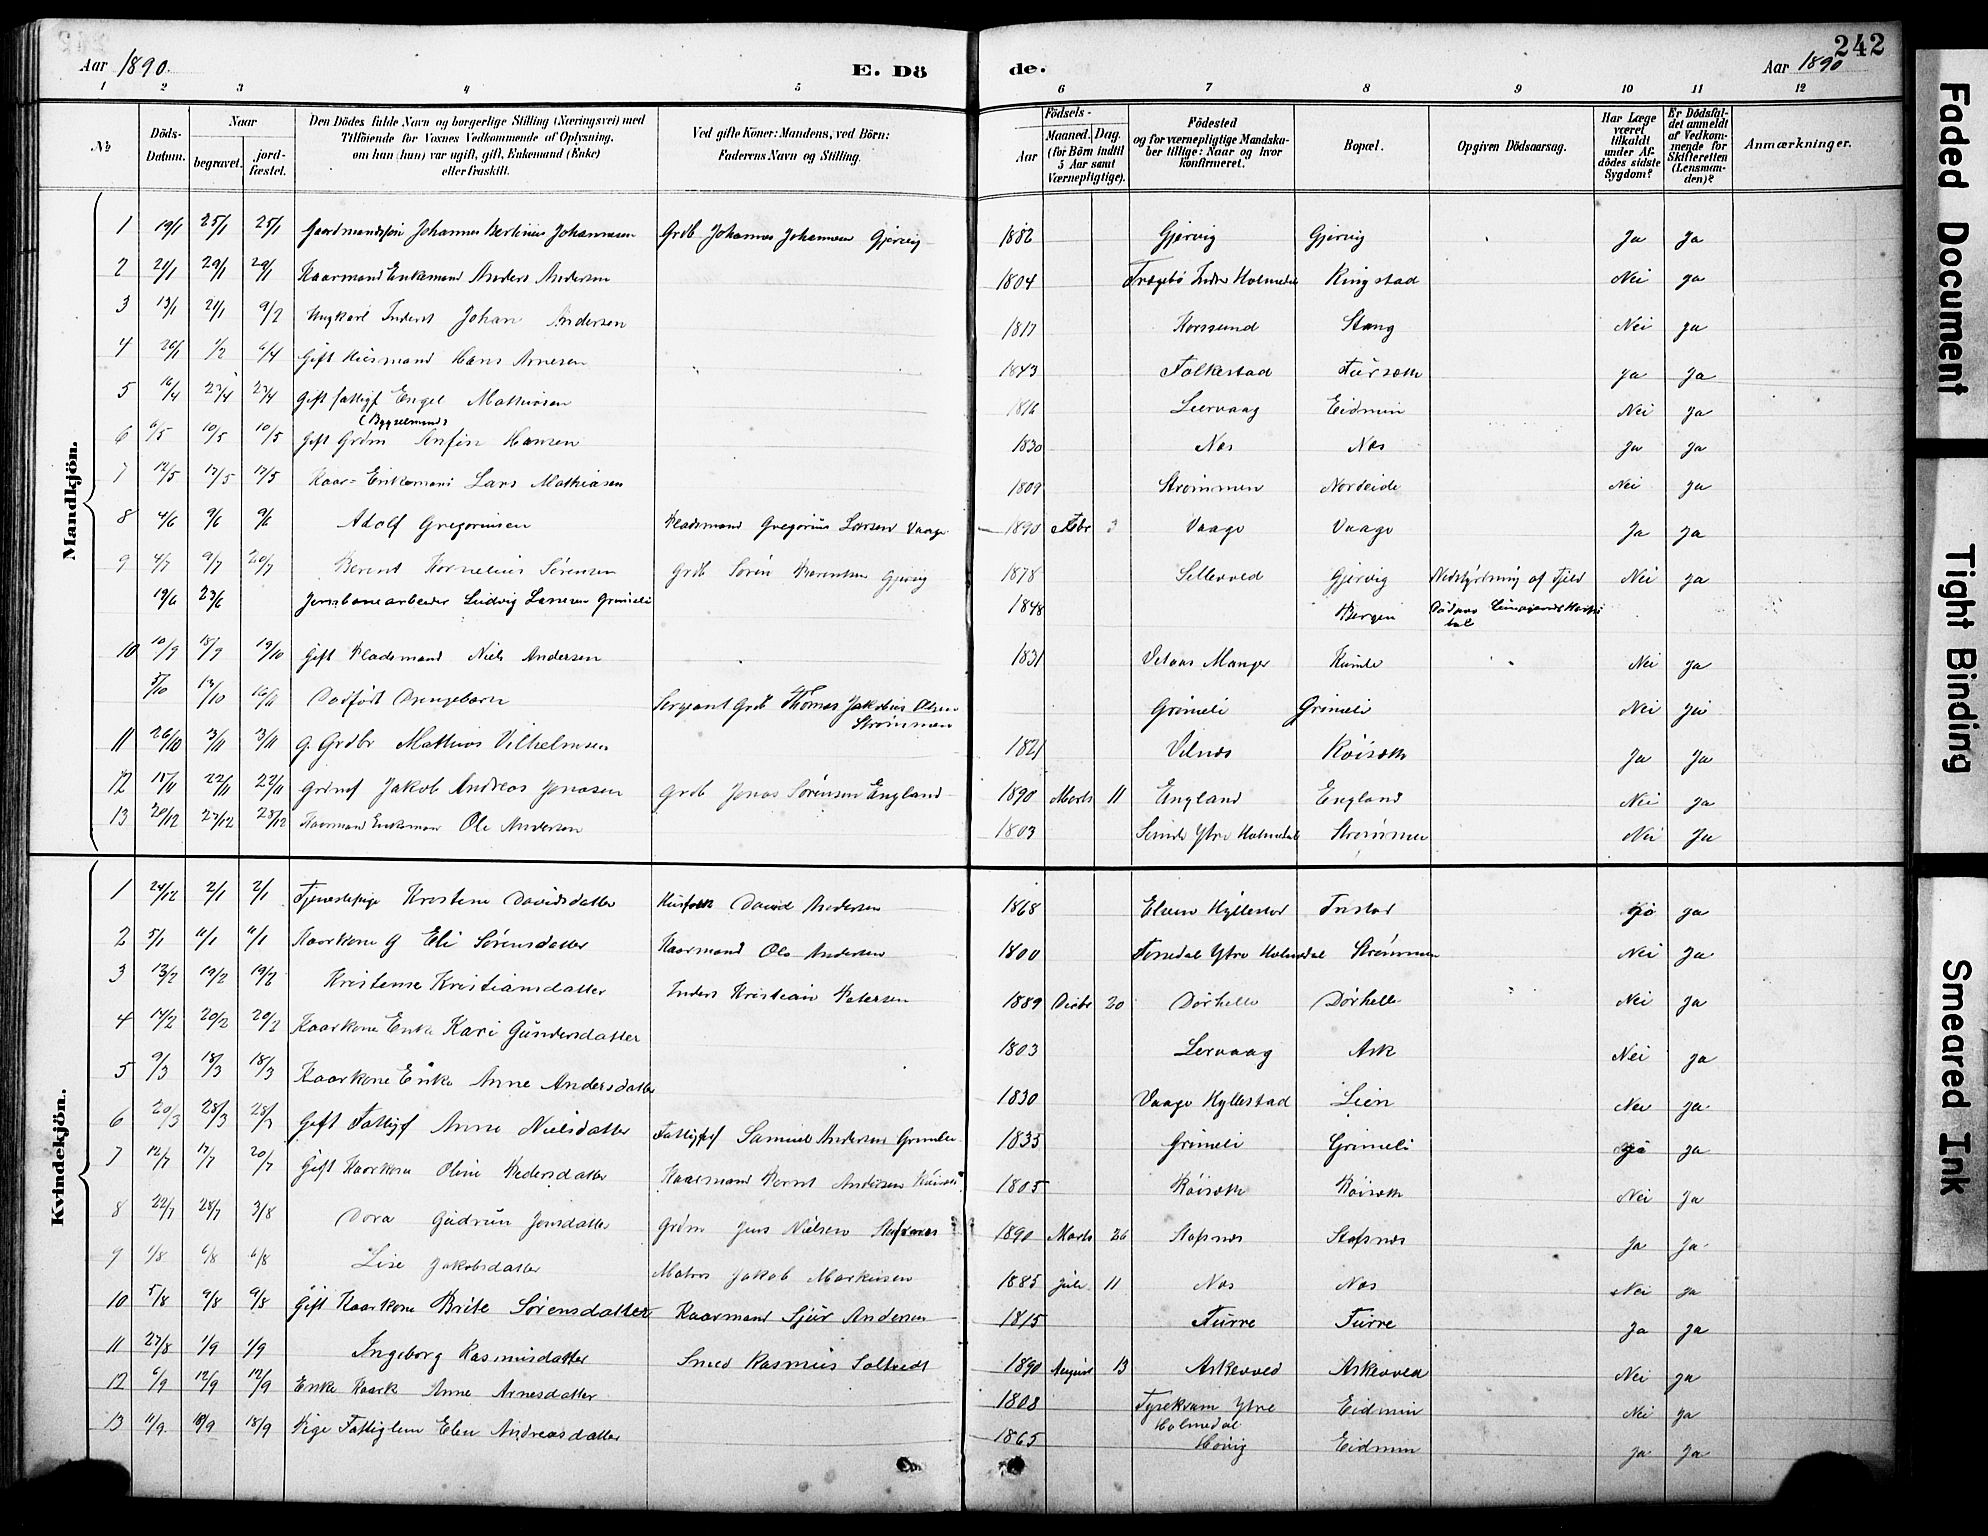 Aar 1890. E. Dö de. Aar 1890 242
1 2 3 4 5 6 7 8 9 10 11 12
№
Döds-Datum.
Naar
begravet.
jordfæstet.
Den Dödes fulde Navn og borgerlige Stilling (Næringsvei) med Tilföiende for Voxnes Vedkommende af Oplysning, om han (hun) var ugift, gift, Enkemand (Enke) eller fraskilt.
Ved gifte Koner: Mandens, ved Börn: Faderens Navn og Stilling.
Födsels-
Aar
Maaned. Dag. (for Börn indtil 5 Aar samt Værnepligtige).
Födested og for værnepligtige Mandskaber tillige: Naar og hvor konfirmeret.
Bopæl.
Opgiven Dödsaarsag.
Har Læge været tilkaldt under Afdödes sidste Sygdom?
Er Dödsfaldet anmeldt af Vedkommende for Skifteretten (Lensmanden)?
Anmærkninger.
Mandkjön.
1 19/1 25/1 25/1 Gaardmandssön Johannes Bertinus Johannesen Grdb Johannes Johannesen Gjervig 1882 Gjervig Gjervig Ja Ja
2 24/1 29/1 29/1 Kaarmand Enkemand Anders Andersen 1804 Trægebö Indre Holmedal Ringstad Nei Ja
3 13/1 21/1 9/2 Ungkarl Inderst Johan Andersen 1817 Korssund Stang Nei Ja
4 26/1 1/2 6/4 Gift Husmand Hans Arnesen 1843 Folkestad Fursæth Ja Ja
5 16/4 23/4 23/4 Gift Fattigf Engel Mathiasen 1816 Leervaag Eidmin Nei Ja
6 6/5 10/5 10/5 Gift Grdm (Bygselmand) Anfin Hansen 1830 Nes Nes Ja Ja
7 12/5 17/5 17/5 Kaar- Enkemand Lars Mathiasen 1809 Strömmen Nordeide Nei Ja
8 4/6 9/6 9/6 Adolf Gregoriusen Pladsmand Gregorius Larsen Vaage 1890 Febr 3 Vaage Vaage Ja Ja
9 4/7 9/7 20/7 Berent Kornelius Sörensen Grdb Sören Berentsen Gjervig 1878 Sellevold Gjervig Nedstyrtning af Fjeld Nei Ja
19/6 23/6 Jernbanearbeider Ludvig Larsen Grimeli 1848 Bergen
10 10/9 18/9 19/10 Gift Pladsmand Niels Andersen 1831 Manger Humle Nei Ja
5/10 13/10 Dödfödt Drengebarn Sergeant Grdb Thomas Jakobius Olsen Strömmen Grimeli Grimeli Nei Ja
11 26/10 3/11 3/11 g. Grdbr Mathias Vilhelmsen 1821 Vilnæs Röisæth Ja Ja
12 18/11 22/11 22/11 Jakob Andreas Jonasen Grdb Jonas Sörensen England 1890 Marts 11 England England Nei Ja
13 20/12 27/12 28/12 Kaarmand Enkeman Ole Andersen 1803 Ytre Holmedal Strömmen Nei Ja
Kvindekjön.
1 24/12 2/1 2/1 Tjenestepige Kristine Davidsdatter David Andersen 1868 Hyllestad Ja Ja
2 5/1 11/1 11/1 Kaarkone g Eli Sörensdatter Kaarmand Ole Andersen 1800 Ytre Holmedal Strömmen Nei Ja
3 13/2 19/2 19/2 Kristense Kristiansdatter Inderst Kristian Petersen 1889 Decbr 20 Dörhelle Dörhelle Nei Ja
4 14/2 20/2 20/2 Kaarkone Enke Kari Gundersdatter 1803 Lervaag Ask Nei Ja
5 9/3 18/3 18/3 Kaarkone Enke Anne Andersdatter 1830 Vaage Hyllestad Lien Nei Ja
6 20/3 28/3 Gift Fattigf Anne Nielsdatter Fattigf Samuel Andersen Grimeli 1835 Grimeli Grimeli Ja
7 12/7 17/7 20/7 Gift Kaarkone Oline Pedersdatter Kaarmand Bernt Andersen 1805 Röisæth Röisæth Nei Ja
8 22/7 28/7 3/8 Dora Gudrun Jensdatter Grdm Jens Nielsen Stafsnæs 1890 Marts 26 Stafsnæs Stafsnæs Ja Ja
9 1/8 6/8 6/8 Lise Jakobsdatter Matros Jakob Markusen 1885 Juli 11 Nes Nes Nei Ja
10 5/8 9/8 9/8 Gift Kaarkone Brite Sörensdatter Kaarmand Sjur Andersen 1815 Furre Furre Ja Ja
11 27/8 1/9 1/9 Ingeborg Rasmusdatter Smed Rasmus Soltvedt 1890 August 13 Askevold Askevold Nei Ja
12 6/9 12/9 12/9 Enke Kaark Anne Arnesdatter 1808 Ytre Holmedal Eidmin Nei Ja
13 11/9 18/9 18/9 Pige Fattiglem Elen Andreasdatter 1865 Eidmin Ja Ja
Faded Document
Tight Binding
Smeared Ink